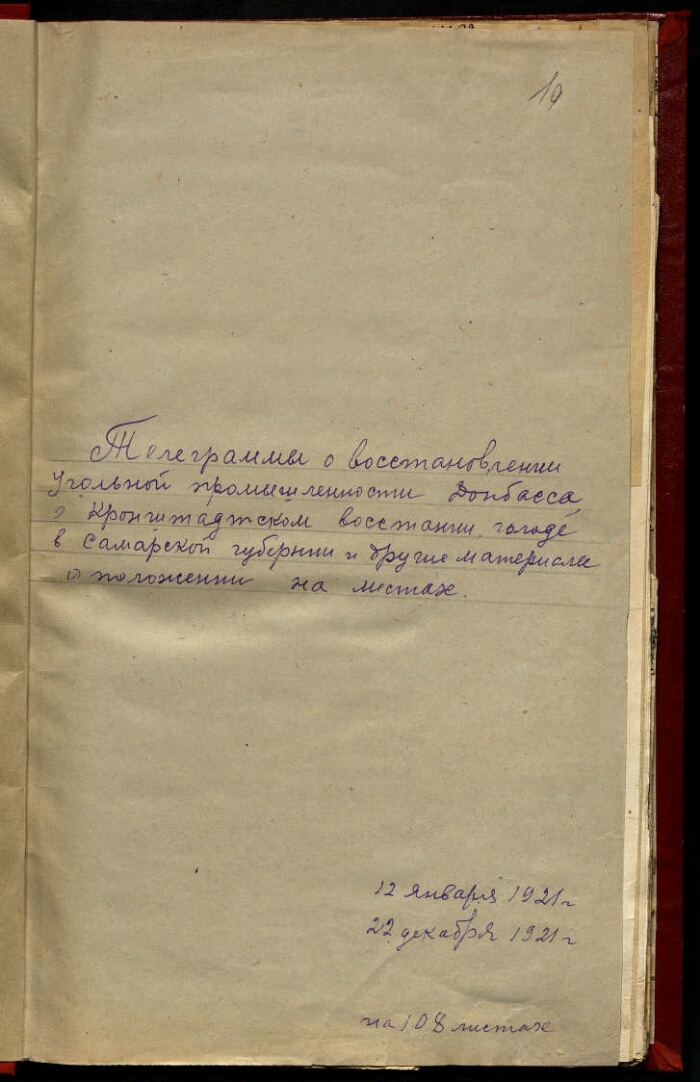 19
Телеграммы о восстановлении
угольной промышленности Донбасса,
о Кронштадтском восстании, голоде
в Самарской губернии и другие материалы
о положении на местах.
12 января 1921 г
22 декабря 1921 г
на 108 листах